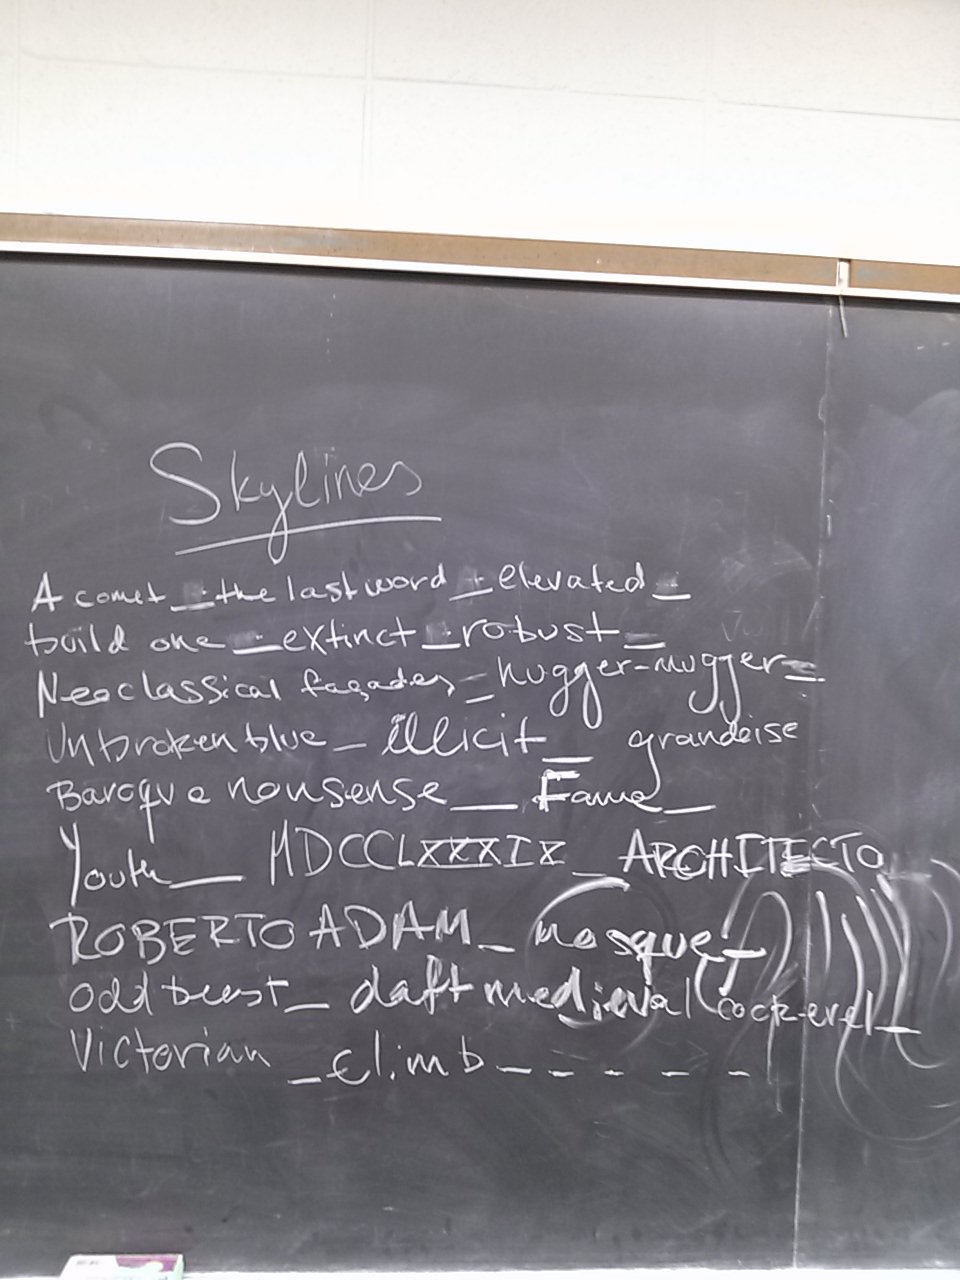 Skylines
A comet _ the last word _ elevated _
build one _ extinct _ robust _
Neoclassical façades _ hugger-mugger _
Unbroken blue _ illicit _ grandeise
Baroque nonsense _ Fame _
Youth _ MDCCLXXXIX _ ARCHITECTO
ROBERTO ADAM _ mosque _
odd beast _ daft medieval cockerel _
Victorian _ climb _ _ _ _ _